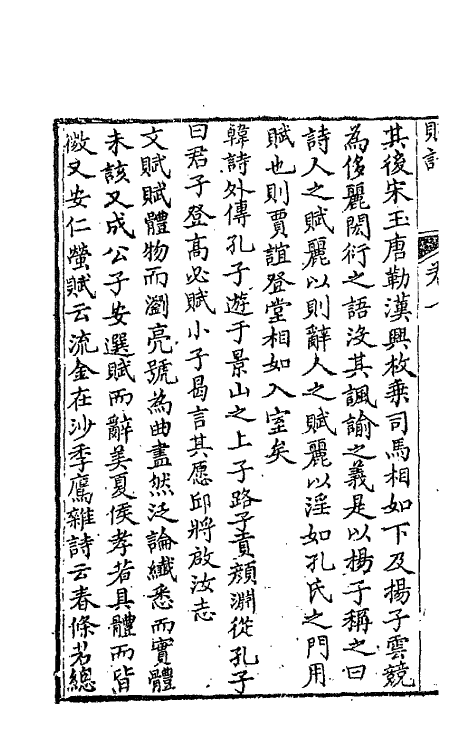 賦話 卷一
其後宋玉唐勒漢興枚乗司馬相如下及揚子雲競
為侈麗閎衍之語沒其諷諭之義是以揚子稱之曰
詩人之賦麗以則辭人之賦麗以淫如孔氏之門用
賦也則賈誼登堂相如入室矣
韓詩外傳孔子遊于景山之上子路子貢顏淵從孔子
曰君子登高必賦小子曷言其愿邱將啟汝志
文賦賦體物而瀏亮號為曲盡然泛論纎悉而實體
未該又成公子安選賦而辭美夏侯孝若具體而皆
微又安仁螢賦云流金在沙季鷹雜詩云春條若總